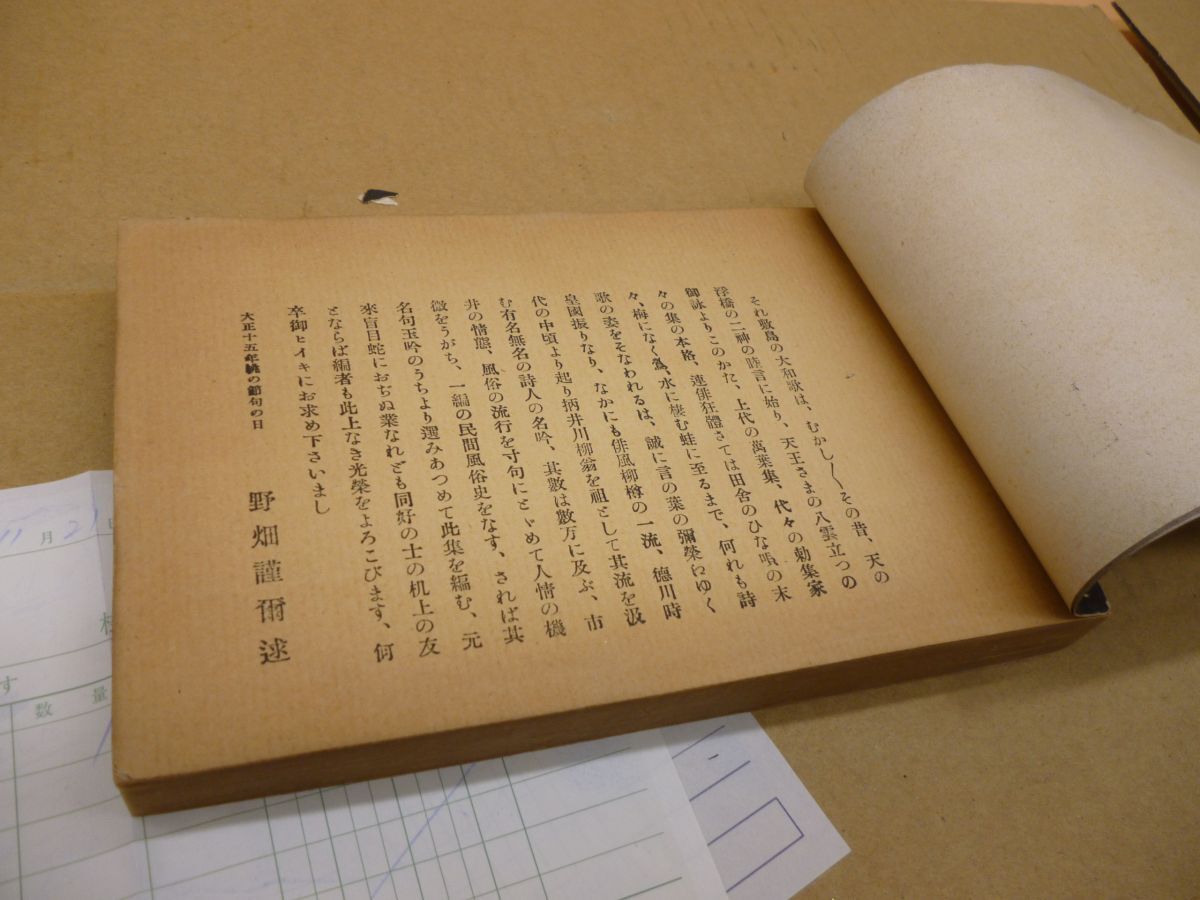 それ敷島の大和歌は、むかし〱その昔、天の
浮橋の二神の睦言に始り、天王さまの八雲立つの
御詠よりこのかた、上代の萬葉集、代々の勅集家
々の集の本格、連俳狂體さては田舎のひな唄の末
々、梅になく鳥、水に棲む蛙に至るまで、何れも詩
歌の姿をそなわれるは、誠に言の葉の彌榮にゆく
皇國振りなり、なかにも俳風柳樽の一流、德川時
代の中頃より起り柄井川柳翁を祖として其流を汲
む有名無名の詩人の名吟、其數は數万に及ぶ、市
井の情態、風俗の流行を寸句にとゞめて人情の機
微をうがち、一編の民間風俗史をなす、されば其
名句玉吟のうちより選みあつめて此集を編む、元
來盲目蛇におぢぬ業なれども同好の士の机上の友
とならば編者も此上なき光榮をよろこびます、何
卒御ヒイキにお求め下さいまし
大正十五年桃の節句の日
野畑謹爾述
11月21日
す
数量